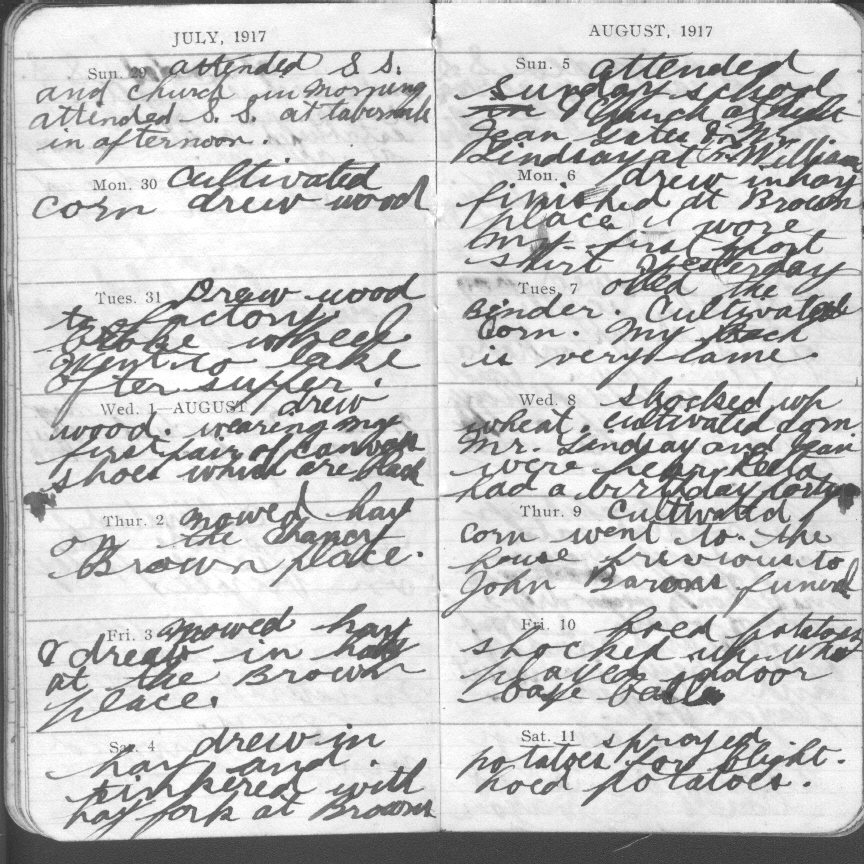 JULY, 1917
Sun. 29 attended S S.
and church in morning
attended S. S. at tabernacle
in afternoon.
Mon. 30 Cultivated
corn drew wood
Tues. 31 Drew wood
to factory
broke wheel
went to lake
after supper.
Wed. 1—AUGUST drew
wood. wearing my
first pair of canvas
shoes which are black
Thur. 2 mowed hay
on the Chancy
Brown place.
Fri. 3 mowed hay
& drew in hay
at the Brown
place.
Sat. 4 drew in
hay and
tinkered with
hay fork at Browns
AUGUST, 1917
Sun. 5 attended
Sunday school
& Church at night
Jean Gates & Mr.
Lindsay at Mr William
Mon. 6 drew in hay
finished at Brown
place I wore
my first sport
shirt Yesterday
Tues. 7 oiled the
binder. Cultivated
Corn. My Back
is very lame.
Wed. 8 shocked up
wheat. cultivated corn
Mr. Lindsay and Jean
were hear Leela
had a birthday party
Thur. 9 Cultivated
corn went to the
house previous to
John Barons funeral
Fri. 10 hoed potatoes
shocked up wheat
played indoor
base ball
Sat. 11 sprayed
potatoes for blight.
hoed potatoes.